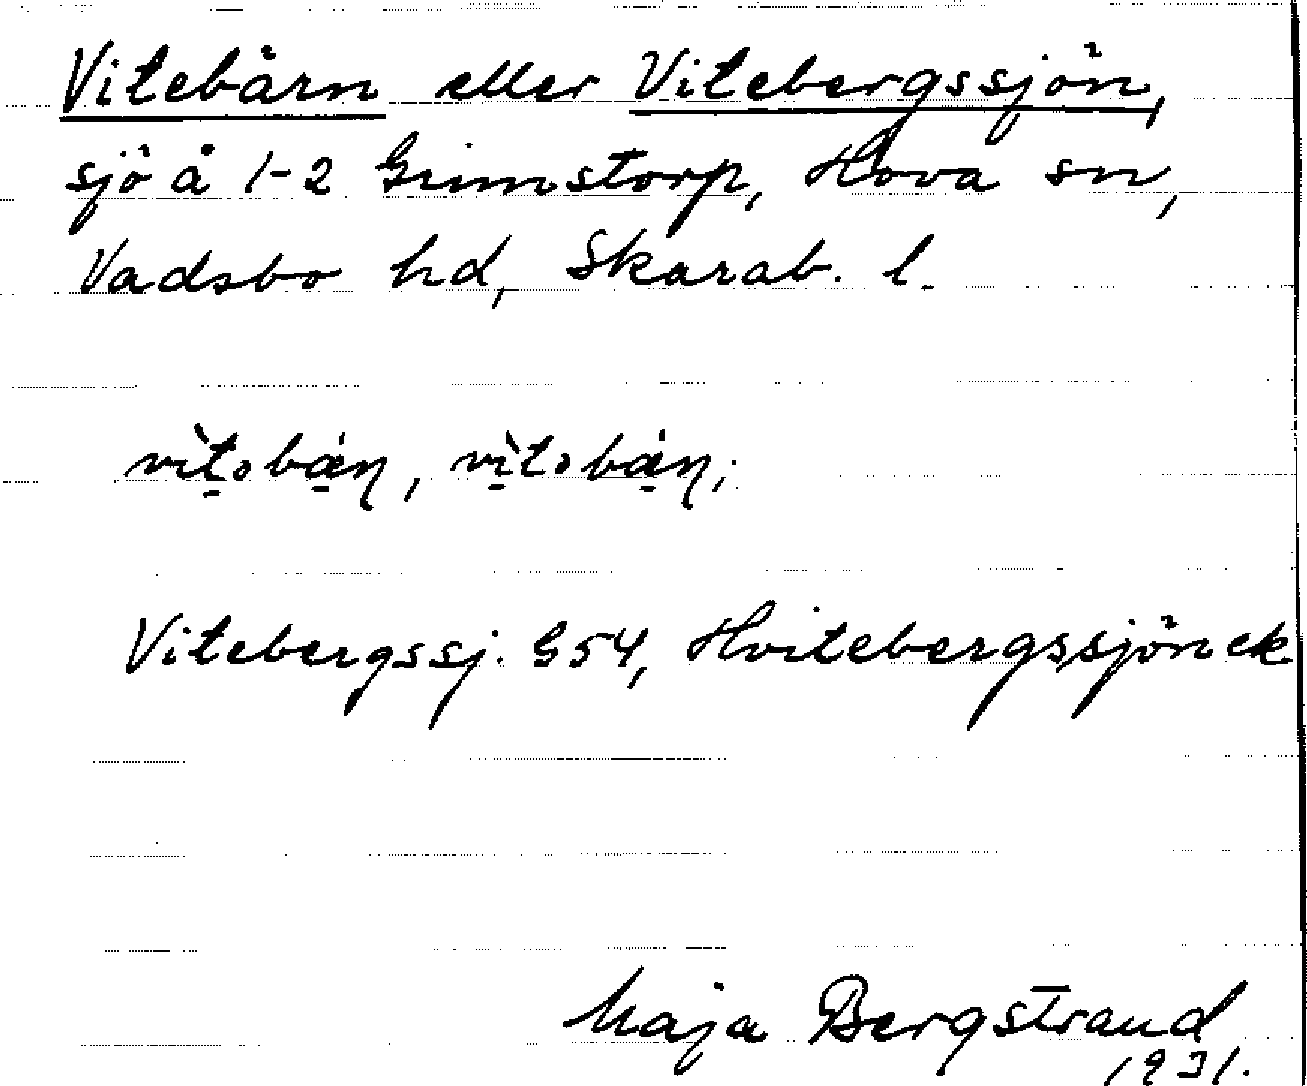 Vitebärn eller Vitebergssjön,
sjö å 1-2 Grimstorp, Hova sn,
Vadsbo hd, Skarab. l.
Vitebergssj. G54, Hvitebergssjön ek
Maja Bergstrand
1931.